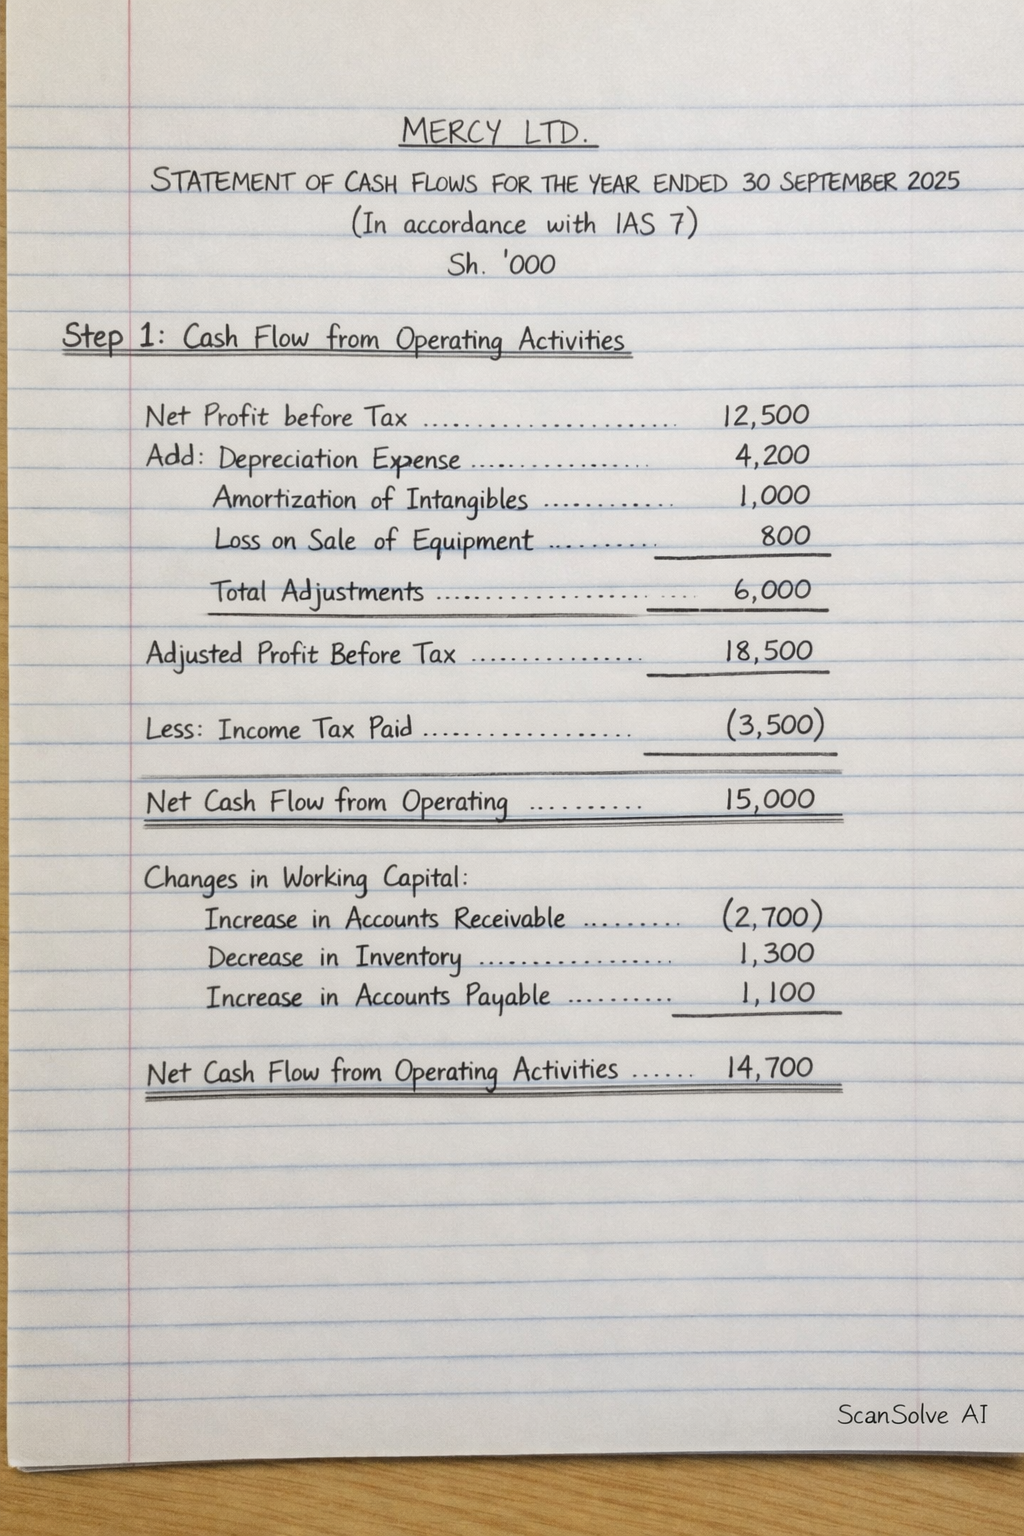 MERCY LTD.
STATEMENT OF CASH FLOWS FOR THE YEAR ENDED 30 SEPTEMBER 2025
(In accordance with IAS 7)
Sh. '000
Step 1: Cash Flow from Operating Activities
Net Profit before Tax ........................ 12,500
Add: Depreciation Expense .................. 4,200
Amortization of Intangibles ............. 1,000
Loss on Sale of Equipment ........... 800
Total Adjustments .......................... 6,000
Adjusted Profit Before Tax ................ 18,500
Less: Income Tax Paid ................... (3,500)
Net Cash Flow from Operating .......... 15,000
Changes in Working Capital:
Increase in Accounts Receivable ......... (2,700)
Decrease in Inventory .................. 1,300
Increase in Accounts Payable .......... 1,100
Net Cash Flow from Operating Activities ...... 14,700
ScanSolve AI